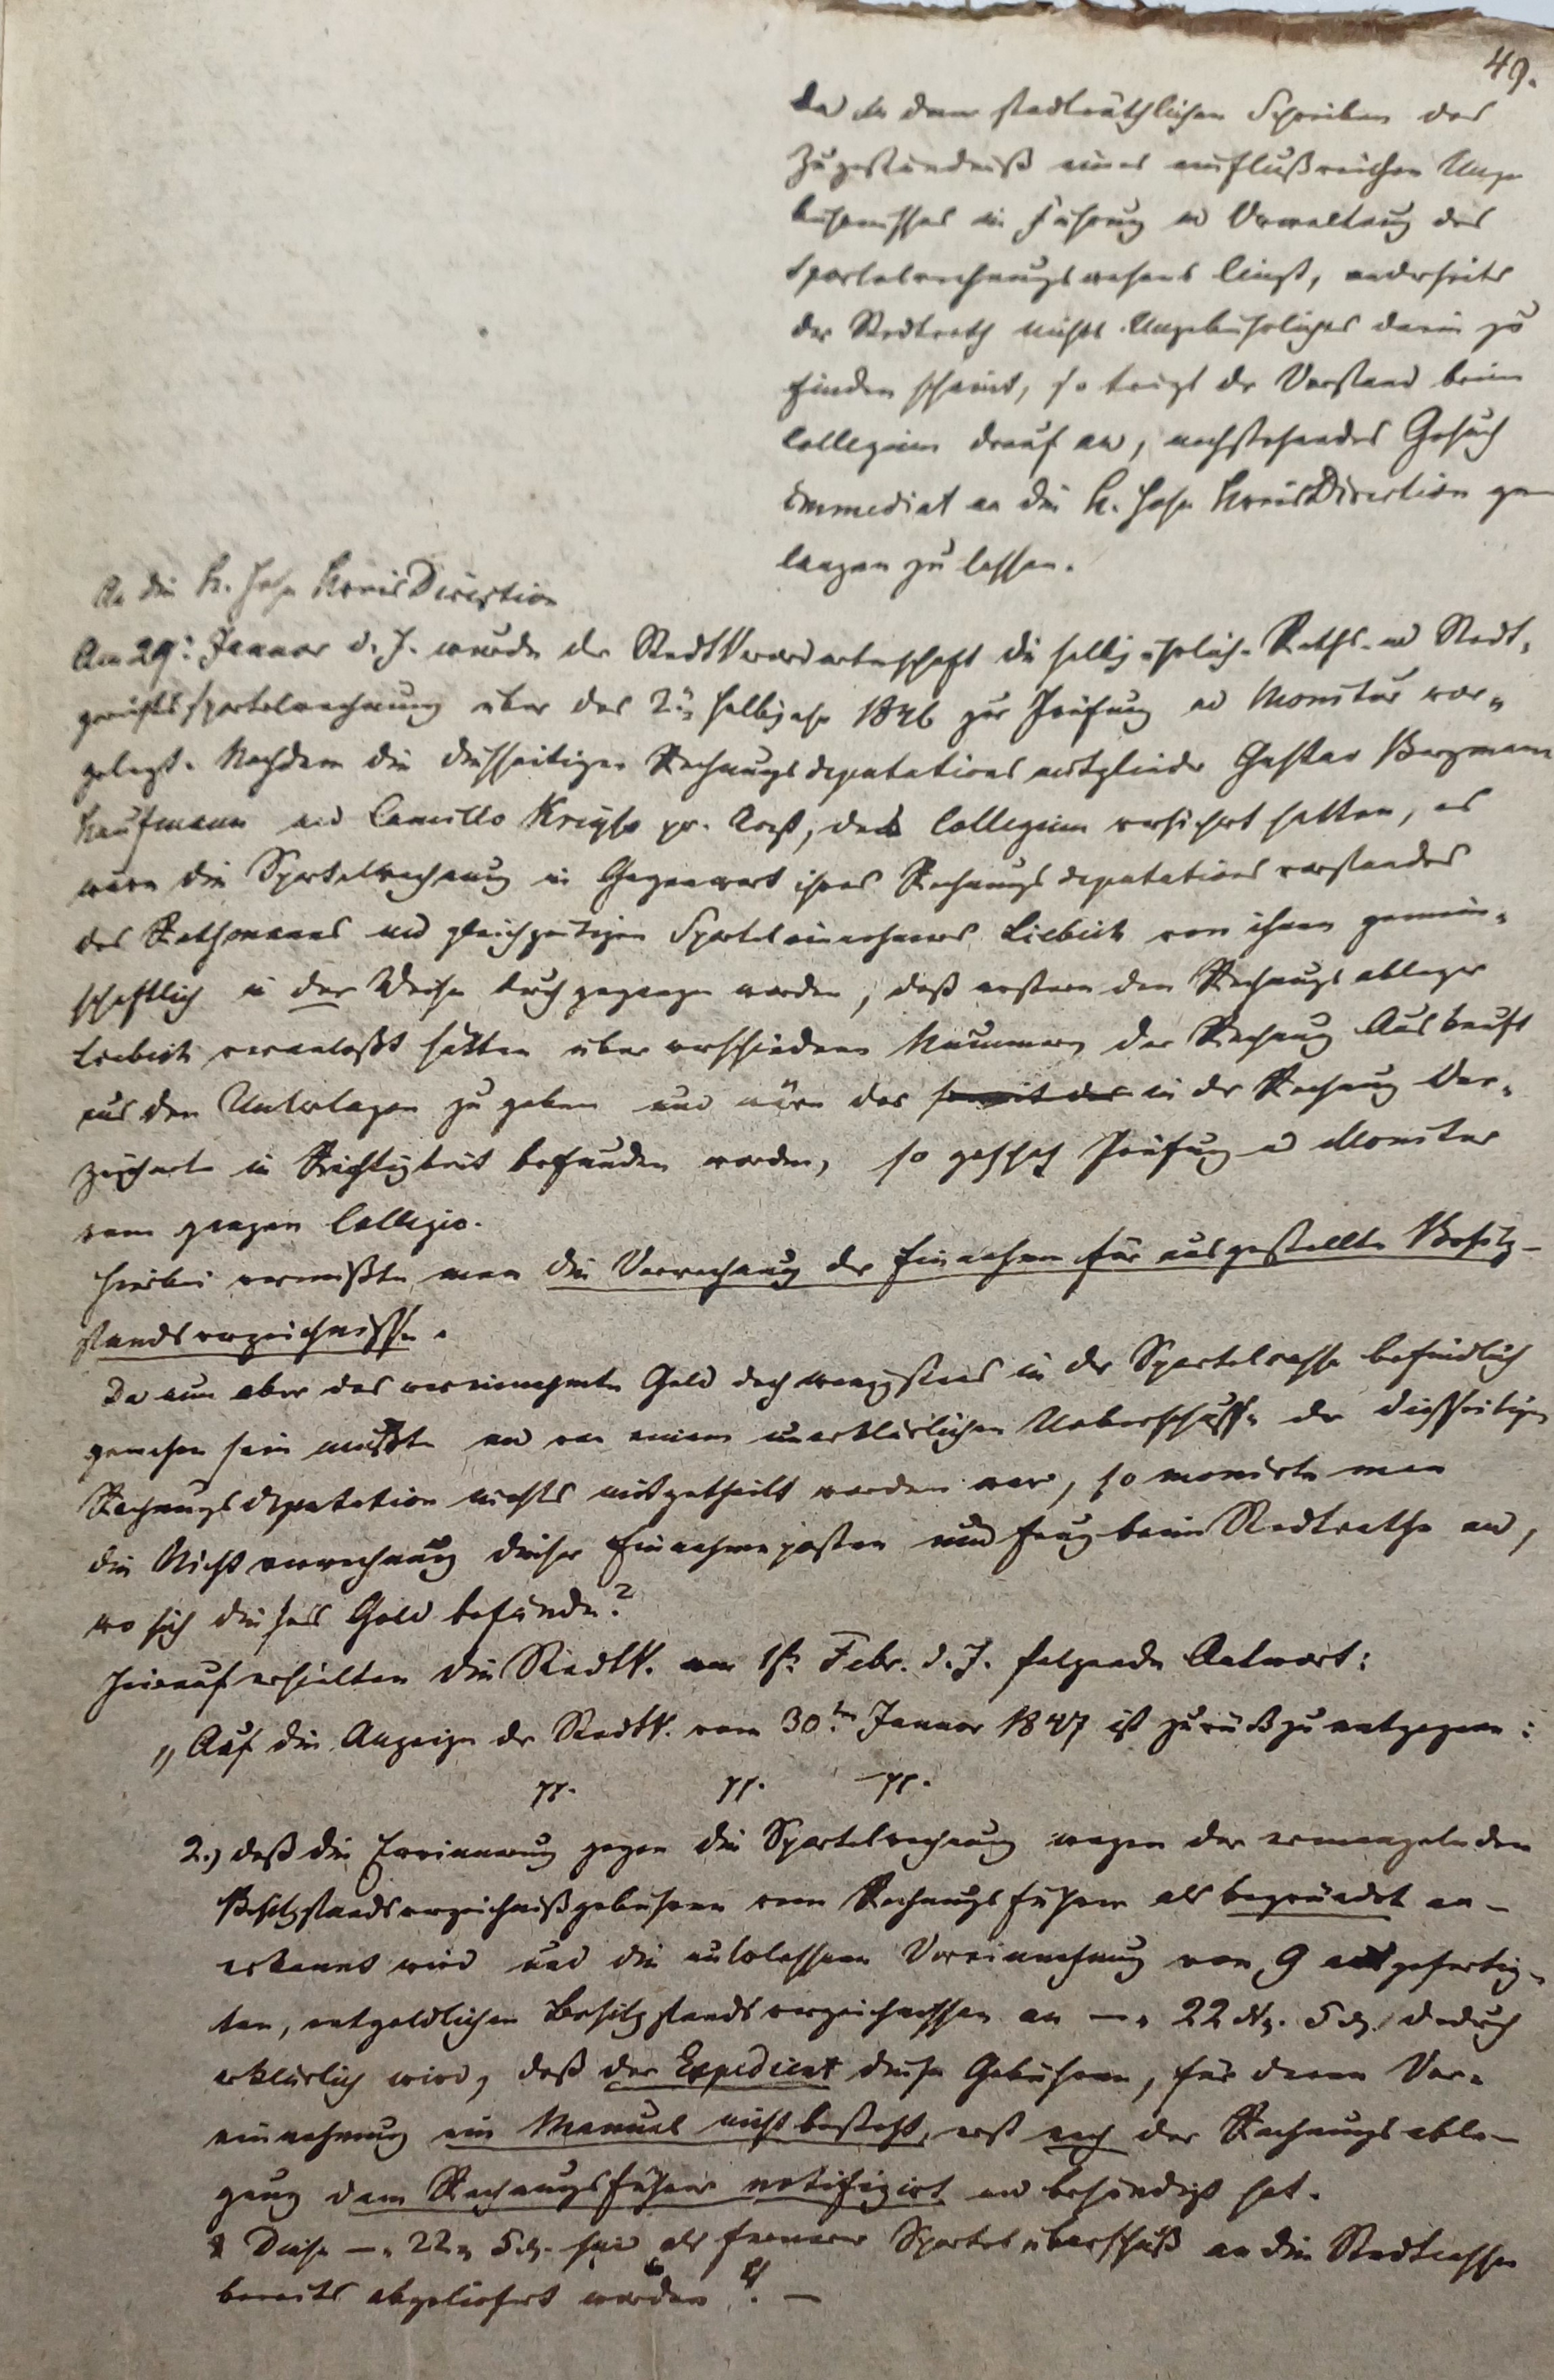 49.
Da in dem stadträthlichen Schreiben das
Zugeständniß eines einflußreichen Unge
bührnisses in Führung u Verwaltung des
Sportelrechnungswesens liegt, anderseits
der Stadtrath nichts Ungebührliches darin zu
finden scheint, so trägt der Vorstand beim
Collegium drauf an, nachstehendes Gesuch
immediat an die K. hohe KreisDirection ge
langen zu lassen.
An die K. hohe KreisDirection
Am 29. Januar d. J. wurde der StadtVerordnetenschaft die halbjährliche Raths- und Stadt-
gerichtssportelrechnung über das 2te Halbjahr 1846 zur Prüfung u Monitur vor-
gelegt. Nachdem die diesseitigen Rechnungsdeputationsmitglieder Gustav Bergmann
Kaufmann und Camillo Kreyße pr. Arzt, das Collegium versichert hatten, es
wäre die Sportelrechnung in Gegenwart ihres Rechnungsdeputationsvorstandes
des Rathmanns und gleichzeitigen Sporteleinnehmers Liebich von ihnen gemein-
schaftlich in der Weise durchgegangen worden, daß erstere den Rechnungsableger
Liebich veranlaßt hätten über verschiedene Nummern der Rechnung Auskunft
aus den Unterlagen zu geben und wäre das somit das in der Rechnung Ver-
zeichnete in Richtigkeit befunden worden, so geschah Prüfung u Monitur
vom ganzen Collegio.
Hierbei vermißte man die Verrechnung der Einnahme für ausgestellte Besitz-
standsverzeichnisse.
Da nun aber das vereinnahmte Geld doch wenigstens in der Sportelcasse befindlich
gewesen sein mußte und von einem unerklärlichen Ueberschusse der diesseitigen
Rechnungsdeputation nichts mitgetheilt worden war, so monirte man
die Nichtverrechnung dieser Einnahmeposten und frug beim Stadtrathe an,
wo sich dieses Geld befände?
Hierauf erhielten die StadtV. am 1st. Febr. d. J. folgende Antwort:
„Auf die Anzeige der StadtV. vom 30ten Januar 1847 ist zurückzuentgegnen:
pp. pp. pp.
2.) daß die Erinnerung gegen die Sportelrechnung wegen der ermangelnden
Besitzstandsverzeichnißgebühren vom Rechnungsführer als begründet an-
erkannt wird und die unterlassene Vereinnahmung von 9 ausgefertig-
ten, entgeldlichen Besitzstandsverzeichnissen an —. 22 Ngr. 5 d. dadurch
erklärlich wird, daß der Expedient diese Gebühren, für deren Ver-
einnahmung ein Manual nicht besteht, erst nach der Rechnungsable-
gung dem Rechnungsführer notifizirt und behändigt hat.
Diese —. 22. 5 d. sind als fernerer Sportelüberschuß an die Stadtcasse
bereits abgeliefert worden". —